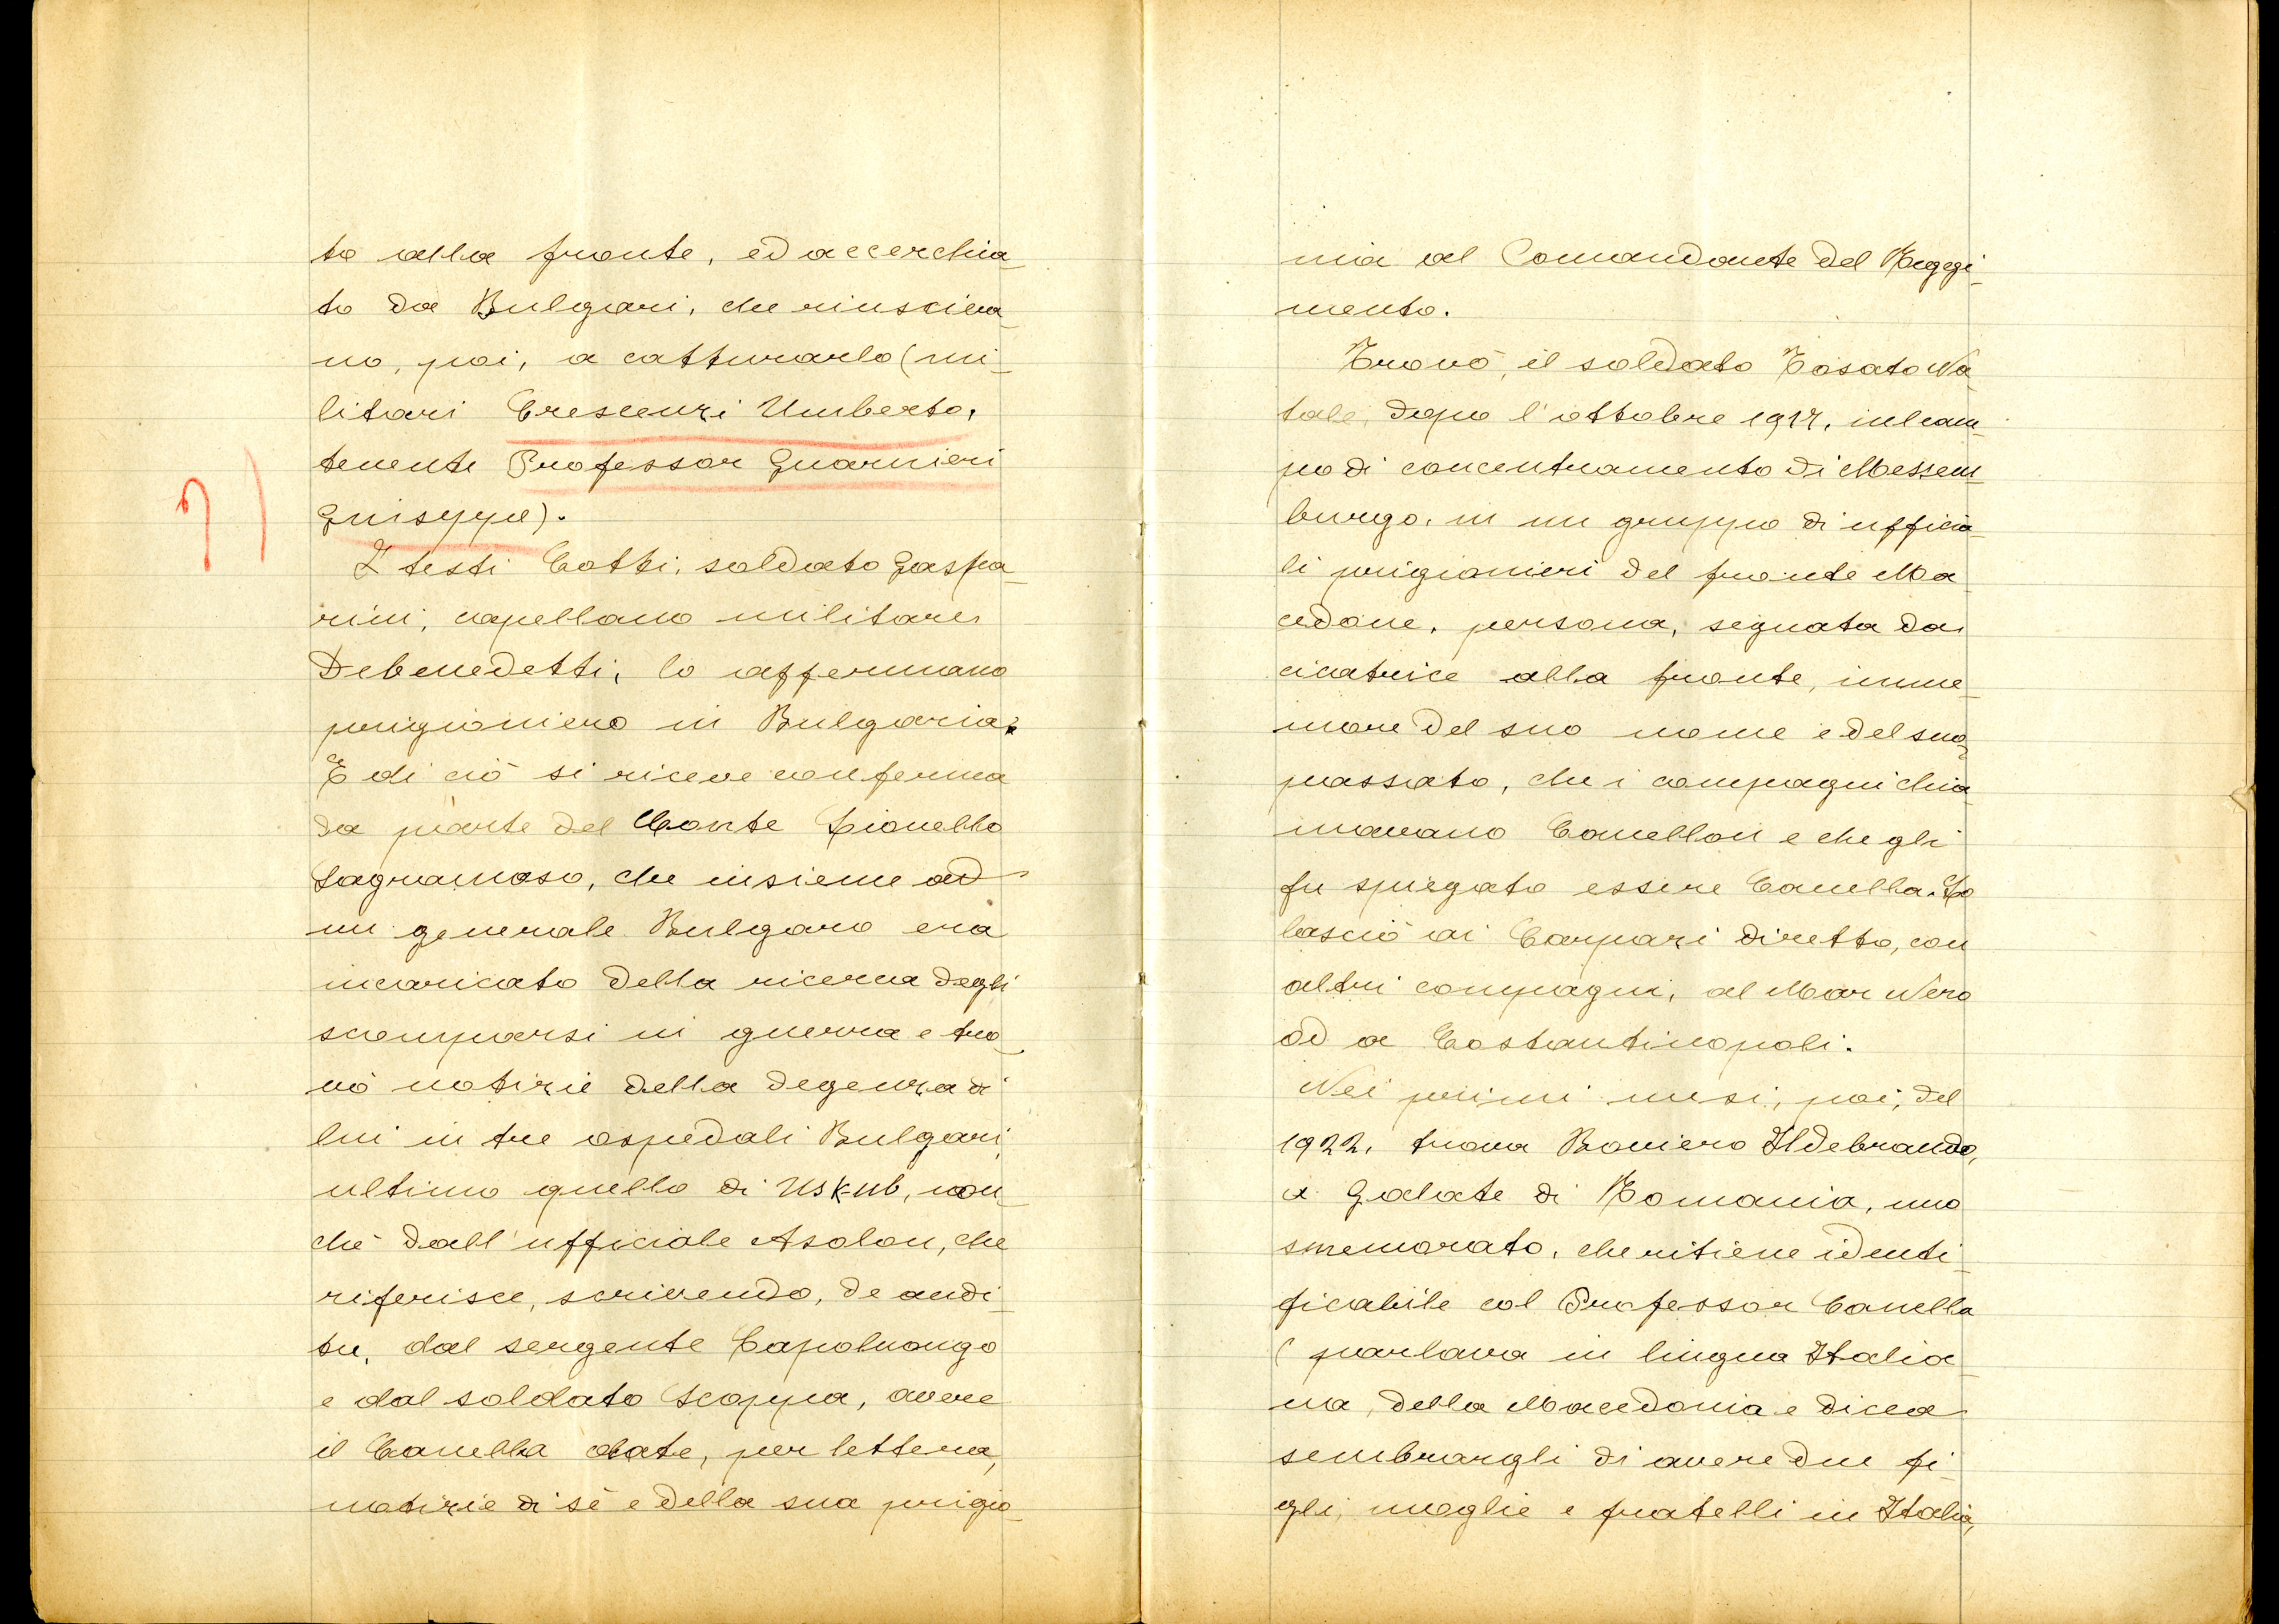 to alla fronte, ed accerchia_
to da Bulgari, che riusciva_
no, poi, a catturarlo (mi_
litari Crescenzi Umberto,
tenente Professor Guarnieri
Guiseppe).
I testi Cotti, soldato Gaspa_
rini, capellano militare
Debenedetti, lo affermano
prigioniero in Bulgaria.
E di ciò si riceve conferma
da parte del Conte Lionello
Sagramoso, che insieme ad
un generale Bulgaro era
incaricato della ricerca degli
scomparsi in guerra e tro_
vò notizie della degenza di
lui in tre ospedali Bulgari,
ultimo quello di Uskub, non_
chè dall'ufficiale Asolon, che
riferisce, scrivendo, de audi_
tu, dal sergente Capoluongo
e dal soldato Scoppa, avere
il Canella date, per lettera,
notizie di sè e della sua prigio_
nia al Comandante del Reggi_
mento.
Trovò, il soldato Tosato Na_
tale, dopo l'ottobre 1917, nel cam_
po di concentramento di Messem_
burgo, in un gruppo di ufficia_
li prigionieri del fronte Ma_
cedone, persona, segnata da
cicatrice alla fronte, imme_
more del suo nome e del suo
passato, che i compagni chia_
mavano Canellon e che gli
fu spiegato essere Canella. Lo
lasciò ai Carpazi diretto, con
altri compagni, al Mar Nero
od a Costantinopoli.
Nei primi mesi, poi, del
1922, trova Boniero Ildebrando,
a Galate di Romania, uno
smemorato, che ritiene identi_
ficabile col Professor Canella
( parlava in lingua Italia_
na, della Macedonia e dicea
sembrargli di avere due fi_
gli, moglie e fratelli in Italia,